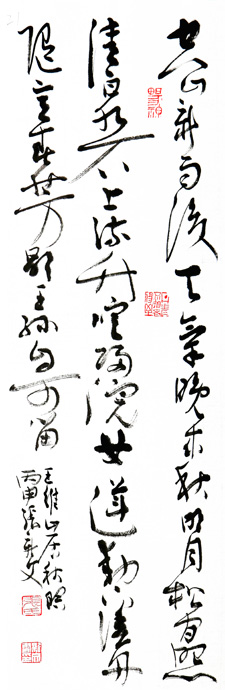 空山新雨後天氣晚来秋明月松間照
清泉石上流竹喧歸浣女蓮動下漁舟
随意春芳歇王孫自可留
王維山居秋暝
丙申張文